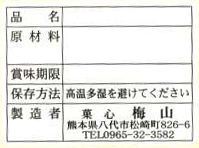 品名
原材料
賞味期限
保存方法 高温多湿を避けてください
製造者 菓心 梅山
熊本県八代市松崎町826-6
TEL0965-32-3582